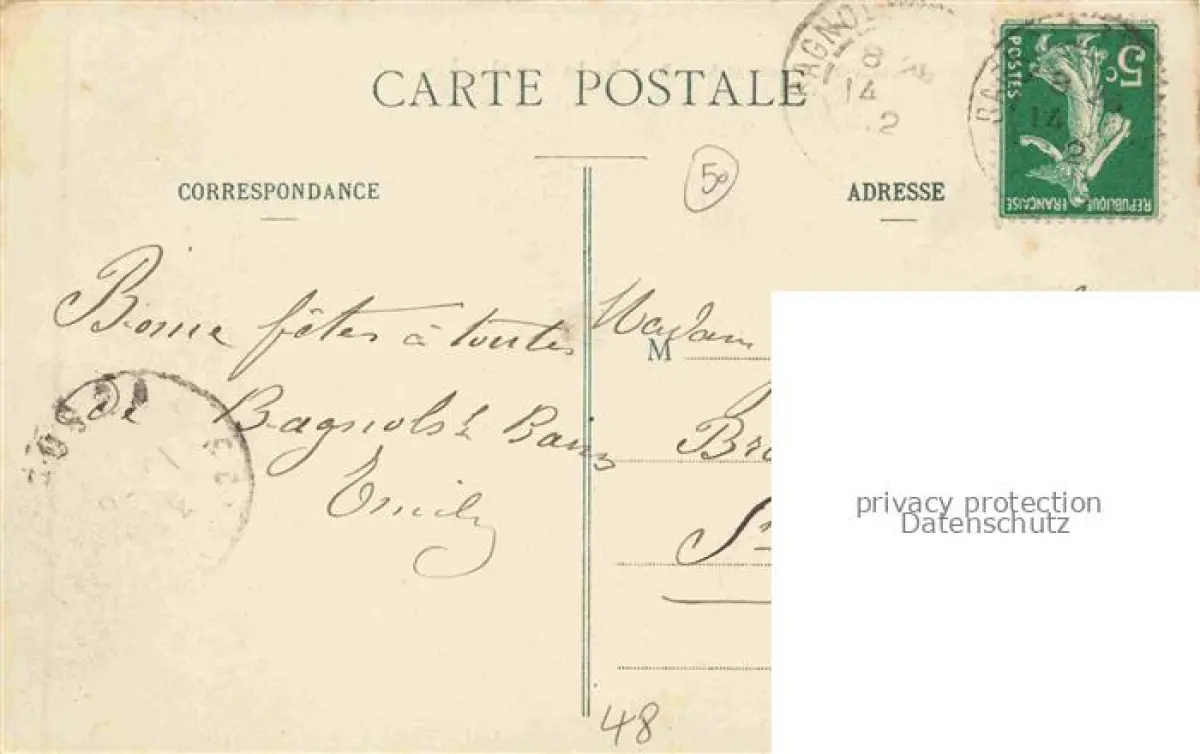 CARTE POSTALE
BAGNOL
8
14
12
POSTES
5c
REPUBLIQUE FRANÇAISE
14
50
CORRESPONDANCE
ADRESSE
Bonne fêtes à toutes
de Bagnols l. Bains
Emily
M
Madam
privacy protection
Datenschutz
48